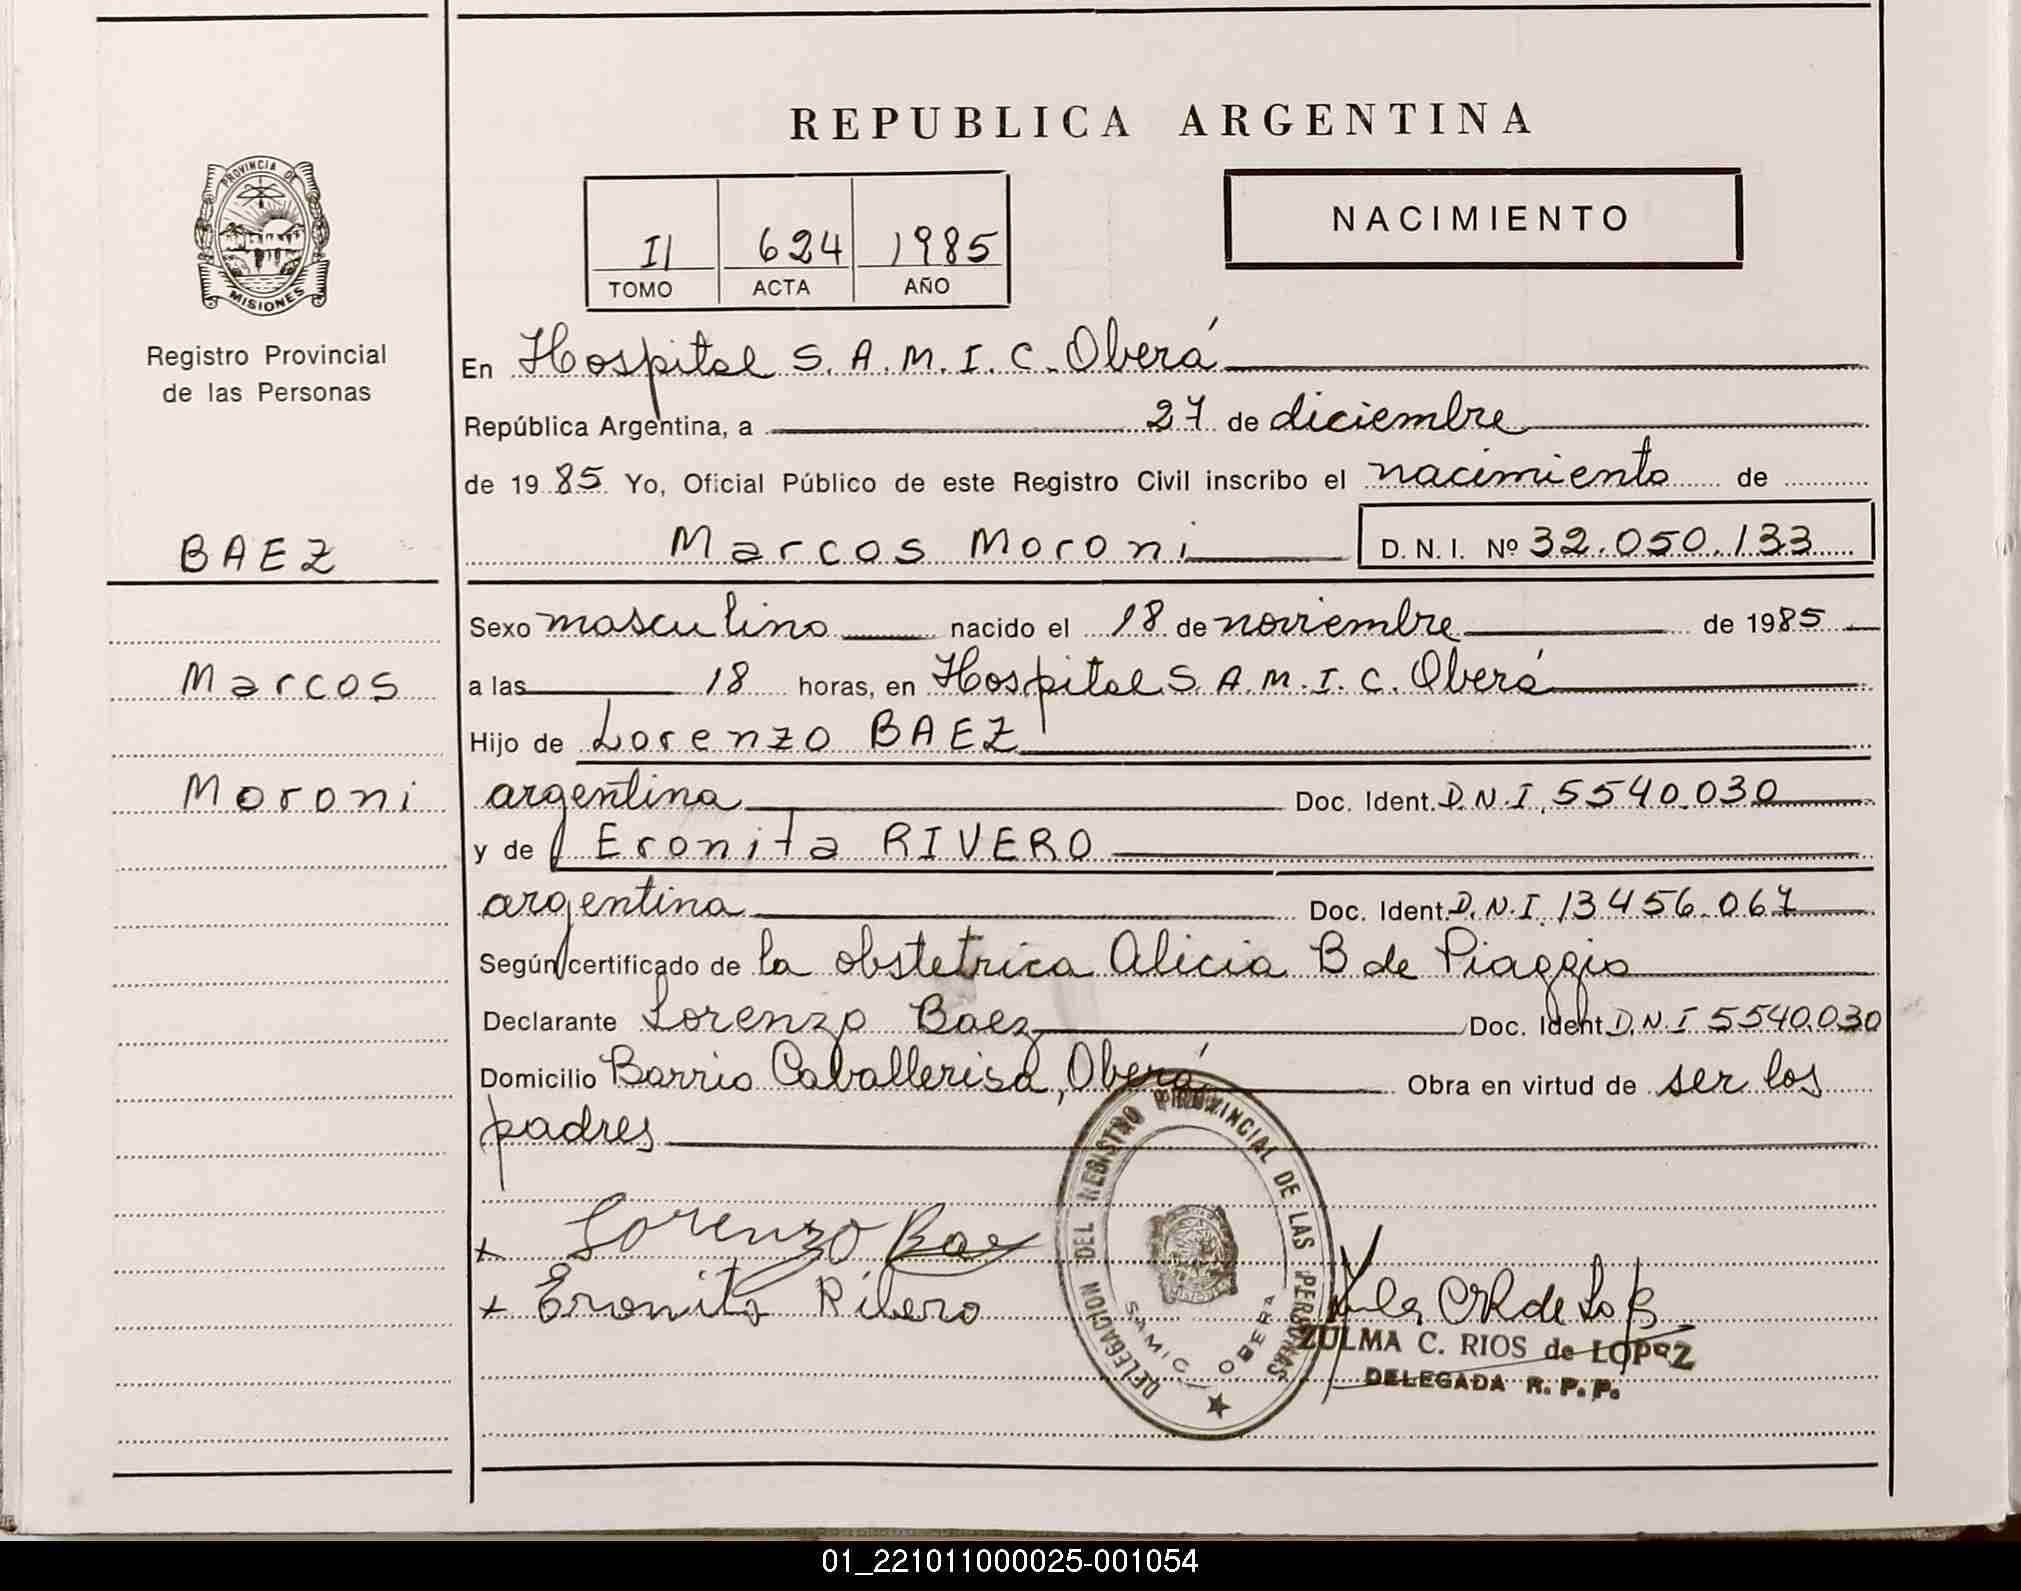 REPUBLICA ARGENTINA
NACIMIENTO
II 624 1985
TOMO ACTA AÑO
PROVINCIA DE
MISIONES
Registro Provincial
de las Personas
BAEZ
Marcos
Moroni
En Hospital S.A.M.I.C. Oberá
República Argentina, a 27 de diciembre
de 1985 Yo, Oficial Público de este Registro Civil inscribo el nacimiento de
Marcos Moroni D. N. I. Nº 32.050.133
Sexo masculino nacido el 18 de noviembre de 1985
a las 18 horas, en Hospital S.A.M.I.C. Oberá
Hijo de Lorenzo BAEZ
argentina Doc. Ident. D.N.I. 5540.030
y de Eronita RIVERO
argentina Doc. Ident. D.N.I. 13456.067
Según certificado de la obstetrica Alicia B de Piaggio
Declarante Lorenzo Baez Doc. Ident. D.N.I 5540.030
Domicilio Barrio Caballerisa, Oberá Obra en virtud de ser los
padres
x Lorenzo Bae
x Eronita Ribero
DELEGACION DEL REGISTRO PROVINCIAL DE LAS PERSONAS
SAMIC OBERA
ZULMA C. RIOS de LOPEZ
DELEGADA R. P. P.
01_221011000025-001054